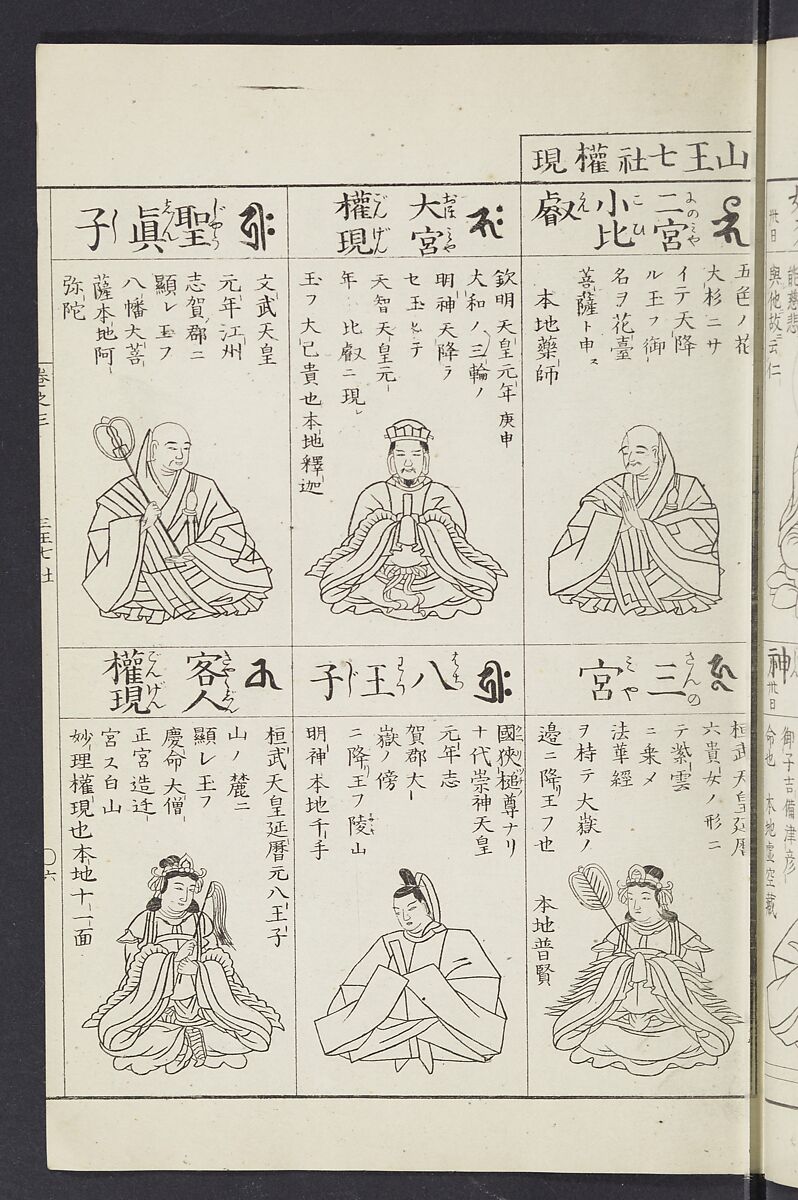 山王七社權現
二宮
にのみや
小比
こひ
叡
え
五色ノ花
大杉ニサ
イテ天降
ル玉フ御
名ヲ花臺
菩薩ト申ス
本地藥師
大宮
權現
ごんげん
欽明天皇元年庚申
大和ノ三輪ノ
明神天降ラ
セ玉ヒテ
天智天皇元
年比叡ニ現レ
玉フ大己貴也本地釋迦
聖眞子
じやうしんし
文武天皇
元年江州
志賀郡ニ
顯レ玉フ
八幡大菩
薩本地阿
弥陀
三宮
さんのみや
桓武天皇延暦
六貴女ノ形ニ
テ紫雲
ニ乗メ
法華經
ヲ持テ大嶽ノ
邊ニ降玉フ也
本地普賢
八王子
はちわうじ
國狹槌尊ナリ
十代崇神天皇
元年志
賀郡大
嶽ノ傍
ニ降玉フ陵山
明神本地千手
客人
權現
ごんげん
桓武天皇延暦元八王子
山ノ麓ニ
顯レ玉フ
慶命大僧
正宮造迁
宮ス白山
妙理權現也本地十一面
卷之三
六
神
卅日
能慈悲
卅日
御子吉備津彦
命也
本地虚空藏